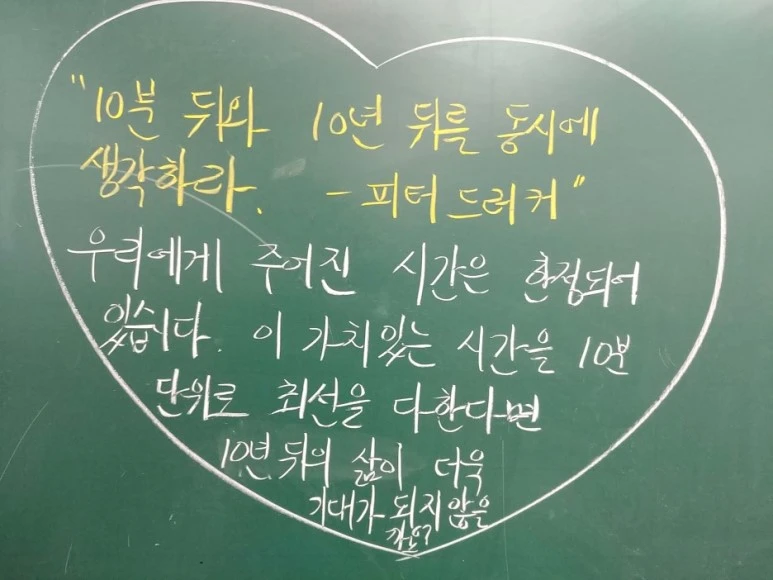 "10분 뒤와 10년 뒤를 동시에
생각하라. - 피터드러커"
우리에게 주어진 시간은 한정되어
있습니다. 이 가치있는 시간을 10분
단위로 최선을 다한다면
10년 뒤의 삶이 더욱
기대가 되지않을
까요?